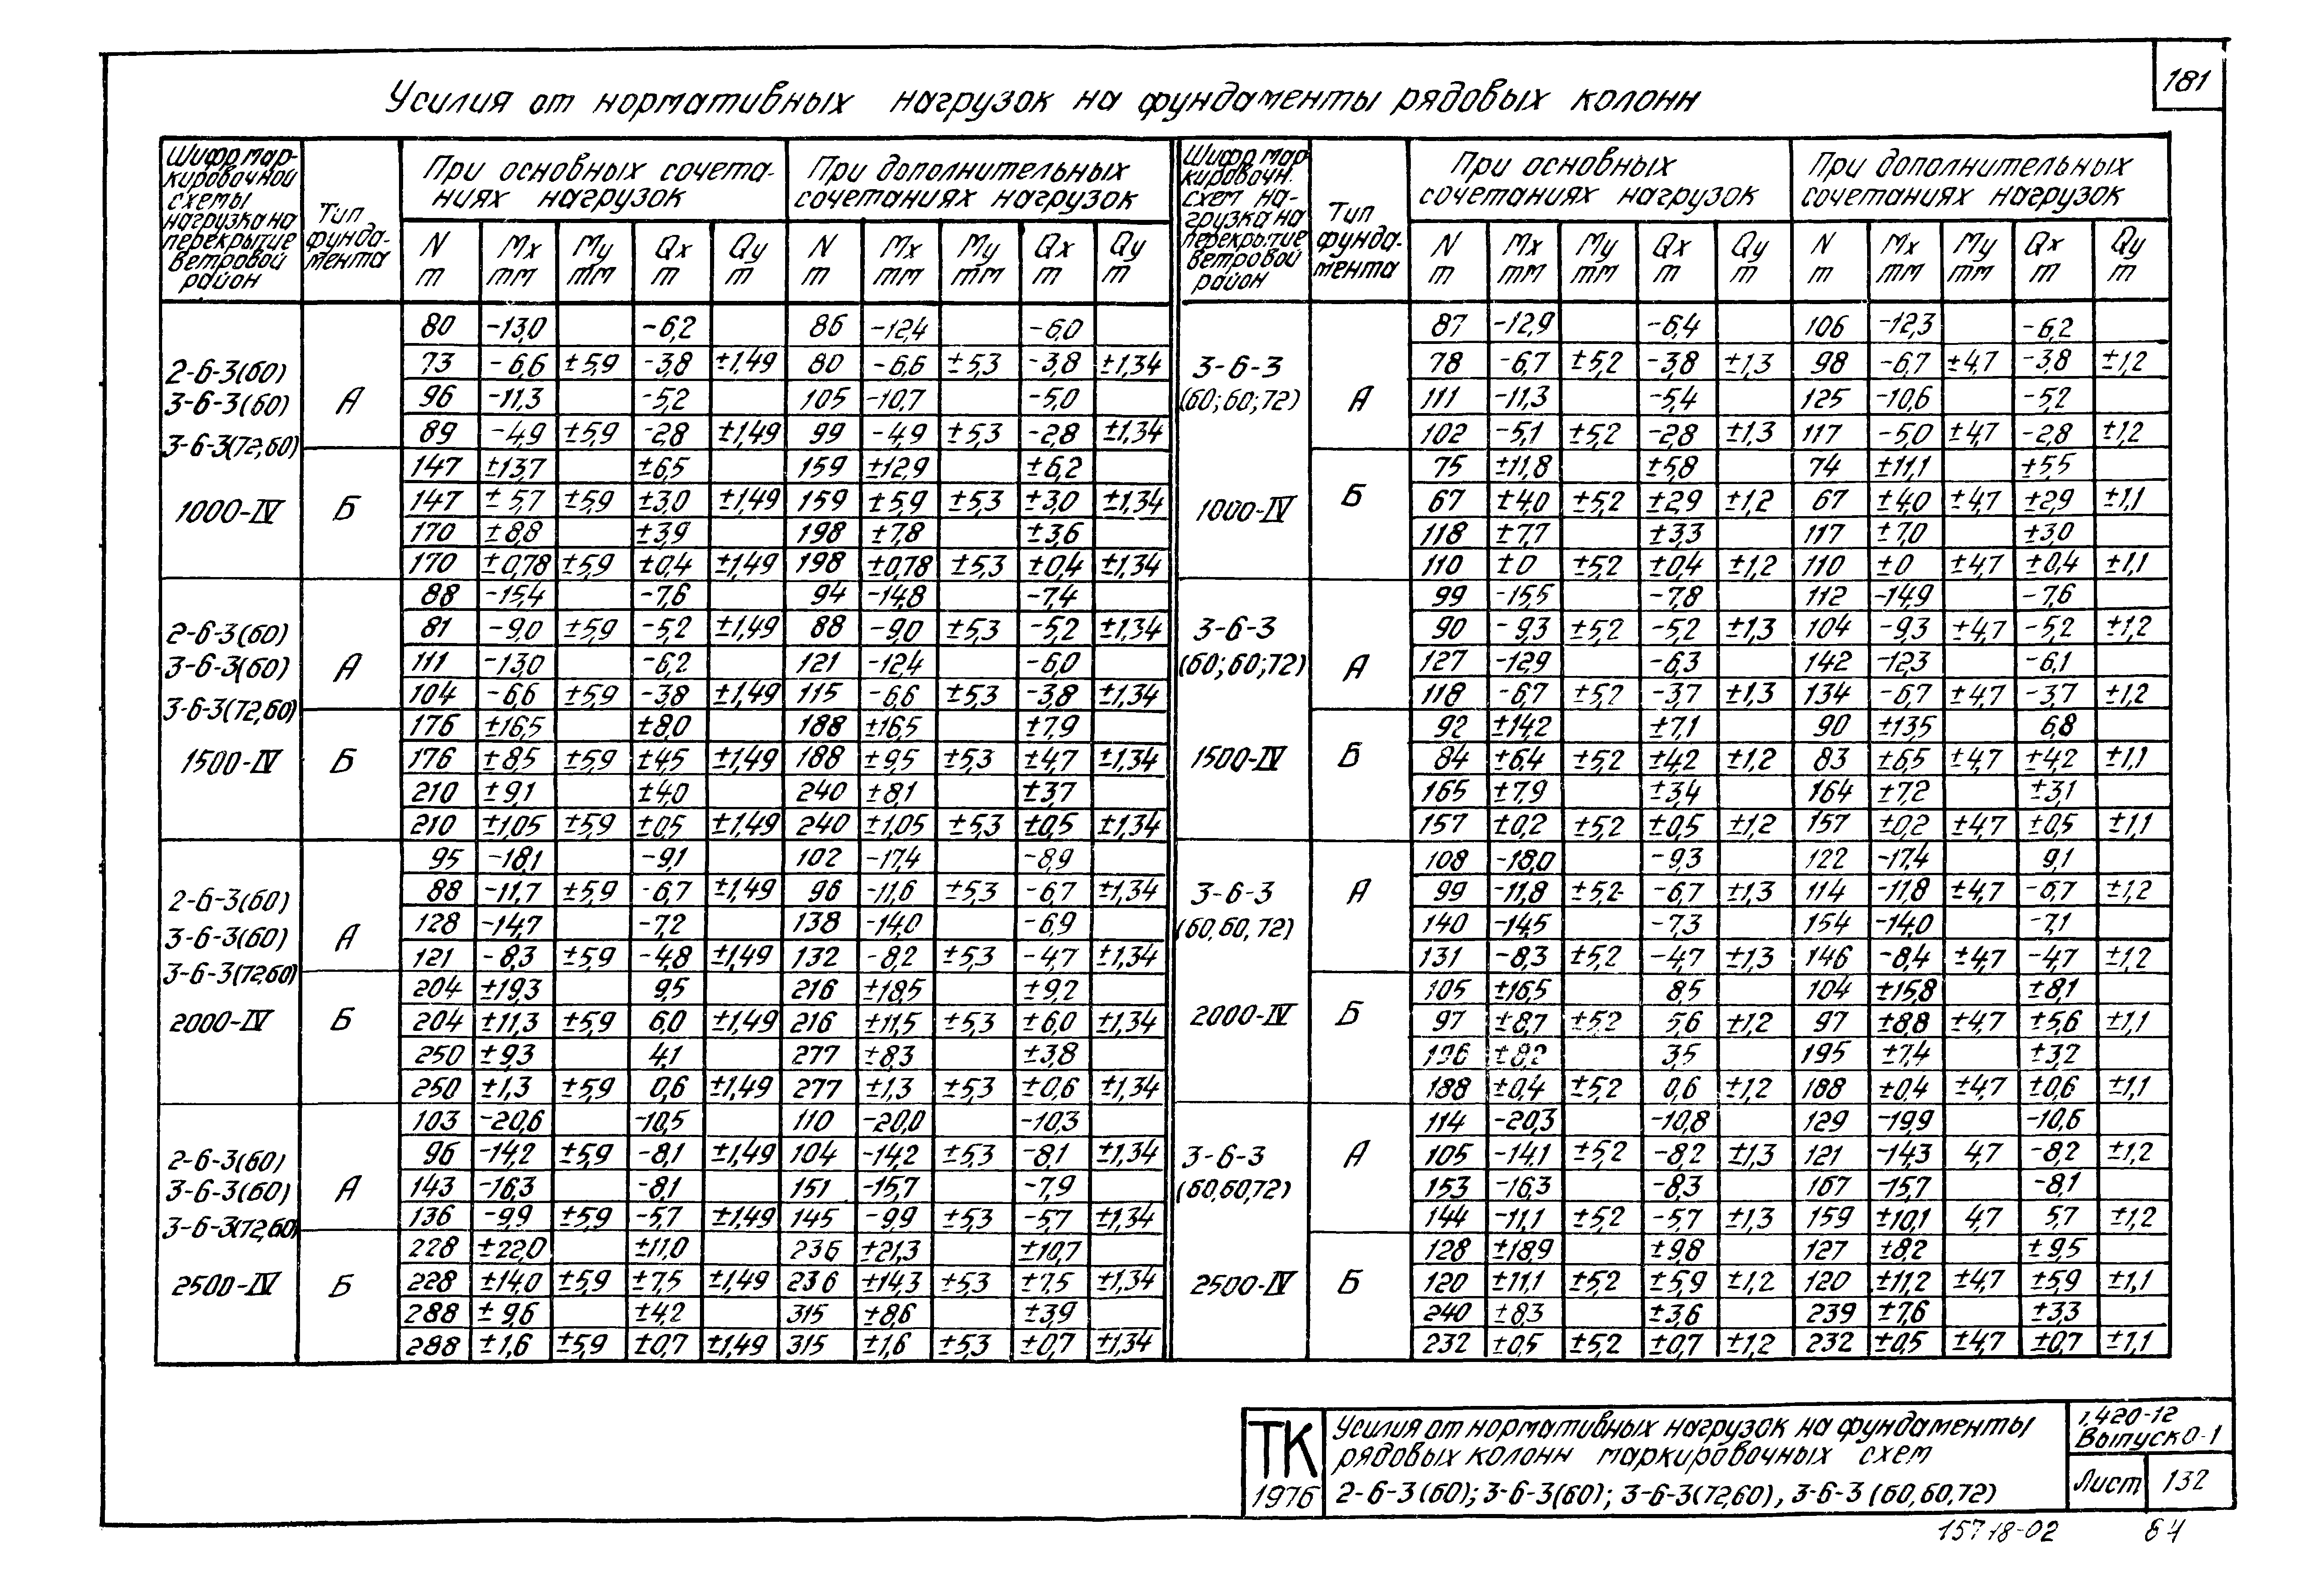 181
Усилия от нормативных нагрузок на фундаменты рядовых колонн
Шифр мар-
кировочной
схемы
нагрузка на
перекрытие
ветровой
район
Тип
фунда-
мента
При основных сочета-
ниях нагрузок
При дополнительных
сочетаниях нагрузок
N т Mx тм My тм Qx т Qy т N т Mx тм My тм Qx т Qy т
2-6-3(60)
3-6-3(60)
3-6-3(72,60)
1000-IV
А
80 -13,0 -6,2 86 -12,4 -6,0
73 -6,6 ±5,9 -3,8 ±1,49 80 -6,6 ±5,3 -3,8 ±1,34
96 -11,3 -5,2 105 -10,7 -5,0
89 -4,9 ±5,9 -2,8 ±1,49 99 -4,9 ±5,3 -2,8 ±1,34
Б
147 ±13,7 ±6,5 159 ±12,9 ±6,2
147 ±5,7 ±5,9 ±3,0 ±1,49 159 ±5,9 ±5,3 ±3,0 ±1,34
170 ±8,8 ±3,9 198 ±7,8 ±3,6
170 ±0,78 ±5,9 ±0,4 ±1,49 198 ±0,78 ±5,3 ±0,4 ±1,34
2-6-3(60)
3-6-3(60)
3-6-3(72,60)
1500-IV
А
88 -15,4 -7,6 94 -14,8 -7,4
81 -9,0 ±5,9 -5,2 ±1,49 88 -9,0 ±5,3 -5,2 ±1,34
111 -13,0 -6,2 121 -12,4 -6,0
104 -6,6 ±5,9 -3,8 ±1,49 115 -6,6 ±5,3 -3,8 ±1,34
Б
176 ±16,5 ±8,0 188 ±16,5 ±7,9
176 ±8,5 ±5,9 ±4,5 ±1,49 188 ±9,5 ±5,3 ±4,7 ±1,34
210 ±9,1 ±4,0 240 ±8,1 ±3,7
210 ±1,05 ±5,9 ±0,5 ±1,49 240 ±1,05 ±5,3 ±0,5 ±1,34
2-6-3(60)
3-6-3(60)
3-6-3(72,60)
2000-IV
А
95 -18,1 -9,1 102 -17,4 -8,9
88 -11,7 ±5,9 -6,7 ±1,49 96 -11,6 ±5,3 -6,7 ±1,34
128 -14,7 -7,2 138 -14,0 -6,9
121 -8,3 ±5,9 -4,8 ±1,49 132 -8,2 ±5,3 -4,7 ±1,34
Б
204 ±19,3 9,5 216 ±18,5 ±9,2
204 ±11,3 ±5,9 6,0 ±1,49 216 ±11,5 ±5,3 ±6,0 ±1,34
250 ±9,3 4,1 277 ±8,3 ±3,8
250 ±1,3 ±5,9 0,6 ±1,49 277 ±1,3 ±5,3 ±0,6 ±1,34
2-6-3(60)
3-6-3(60)
3-6-3(72,60)
2500-IV
А
103 -20,6 -10,5 110 -20,0 -10,3
96 -14,2 ±5,9 -8,1 ±1,49 104 -14,2 ±5,3 -8,1 ±1,34
143 -16,3 -8,1 151 -15,7 -7,9
136 -9,9 ±5,9 -5,7 ±1,49 145 -9,9 ±5,3 -5,7 ±1,34
Б
228 ±22,0 ±11,0 236 ±21,3 ±10,7
228 ±14,0 ±5,9 ±7,5 ±1,49 236 ±14,3 ±5,3 ±7,5 ±1,34
288 ±9,6 ±4,2 315 ±8,6 ±3,9
288 ±1,6 ±5,9 ±0,7 ±1,49 315 ±1,6 ±5,3 ±0,7 ±1,34
Шифр мар
кировочн.
схем на-
грузка на
перекрытие
ветровой
район
Тип
фунда-
мента
При основных
сочетаниях нагрузок
При дополнительных
сочетаниях нагрузок
N т Mx тм My тм Qx т Qy т N т Mx тм My тм Qx т Qy т
3-6-3
(60;60;72)
1000-IV
А
87 -12,9 -6,4 106 -12,3 -6,2
78 -6,7 ±5,2 -3,8 ±1,3 98 -6,7 ±4,7 -3,8 ±1,2
111 -11,3 -5,4 125 -10,6 -5,2
102 -5,1 ±5,2 -2,8 ±1,3 117 -5,0 ±4,7 -2,8 ±1,2
Б
75 ±11,8 ±5,8 74 ±11,1 ±5,5
67 ±4,0 ±5,2 ±2,9 ±1,2 67 ±4,0 ±4,7 ±2,9 ±1,1
118 ±7,7 ±3,3 117 ±7,0 ±3,0
110 ±0 ±5,2 ±0,4 ±1,2 110 ±0 ±4,7 ±0,4 ±1,1
3-6-3
(60;60;72)
1500-IV
А
99 -15,5 -7,8 112 -14,9 -7,6
90 -9,3 ±5,2 -5,2 ±1,3 104 -9,3 ±4,7 -5,2 ±1,2
127 -12,9 -6,3 142 -12,3 -6,1
118 -6,7 ±5,2 -3,7 ±1,3 134 -6,7 ±4,7 -3,7 ±1,2
Б
92 ±14,2 ±7,1 90 ±13,5 6,8
84 ±6,4 ±5,2 ±4,2 ±1,2 83 ±6,5 ±4,7 ±4,2 ±1,1
165 ±7,9 ±3,4 164 ±7,2 ±3,1
157 ±0,2 ±5,2 ±0,5 ±1,2 157 ±0,2 ±4,7 ±0,5 ±1,1
3-6-3
(60,60,72)
2000-IV
А
108 -18,0 -9,3 122 -17,4 9,1
99 -11,8 ±5,2 -6,7 ±1,3 114 -11,8 ±4,7 -6,7 ±1,2
140 -14,5 -7,3 154 -14,0 -7,1
131 -8,3 ±5,2 -4,7 ±1,3 146 -8,4 ±4,7 -4,7 ±1,2
Б
105 ±16,5 8,5 104 ±15,8 ±8,1
97 ±8,7 ±5,2 5,6 ±1,2 97 ±8,8 ±4,7 ±5,6 ±1,1
196 ±8,2 3,5 195 ±7,4 ±3,2
188 ±0,4 ±5,2 0,6 ±1,2 188 ±0,4 ±4,7 ±0,6 ±1,1
3-6-3
(60,60,72)
2500-IV
А
114 -20,3 -10,8 129 -19,9 -10,6
105 -14,1 ±5,2 -8,2 ±1,3 121 -14,3 4,7 -8,2 ±1,2
153 -16,3 -8,3 167 -15,7 -8,1
144 -11,1 ±5,2 -5,7 ±1,3 159 ±10,1 4,7 5,7 ±1,2
Б
128 ±18,9 ±9,8 127 ±8,2 ±9,5
120 ±11,1 ±5,2 ±5,9 ±1,2 120 ±11,2 ±4,7 ±5,9 ±1,1
240 ±8,3 ±3,6 239 ±7,6 ±3,3
232 ±0,5 ±5,2 ±0,7 ±1,2 232 ±0,5 ±4,7 ±0,7 ±1,1
ТК
1976
Усилия от нормативных нагрузок на фундаменты
рядовых колонн маркировочных схем
2-6-3(60); 3-6-3(60); 3-6-3(72,60), 3-6-3(60,60,72)
1.420-12
Выпуск 0-1
Лист 132
15718-02 84